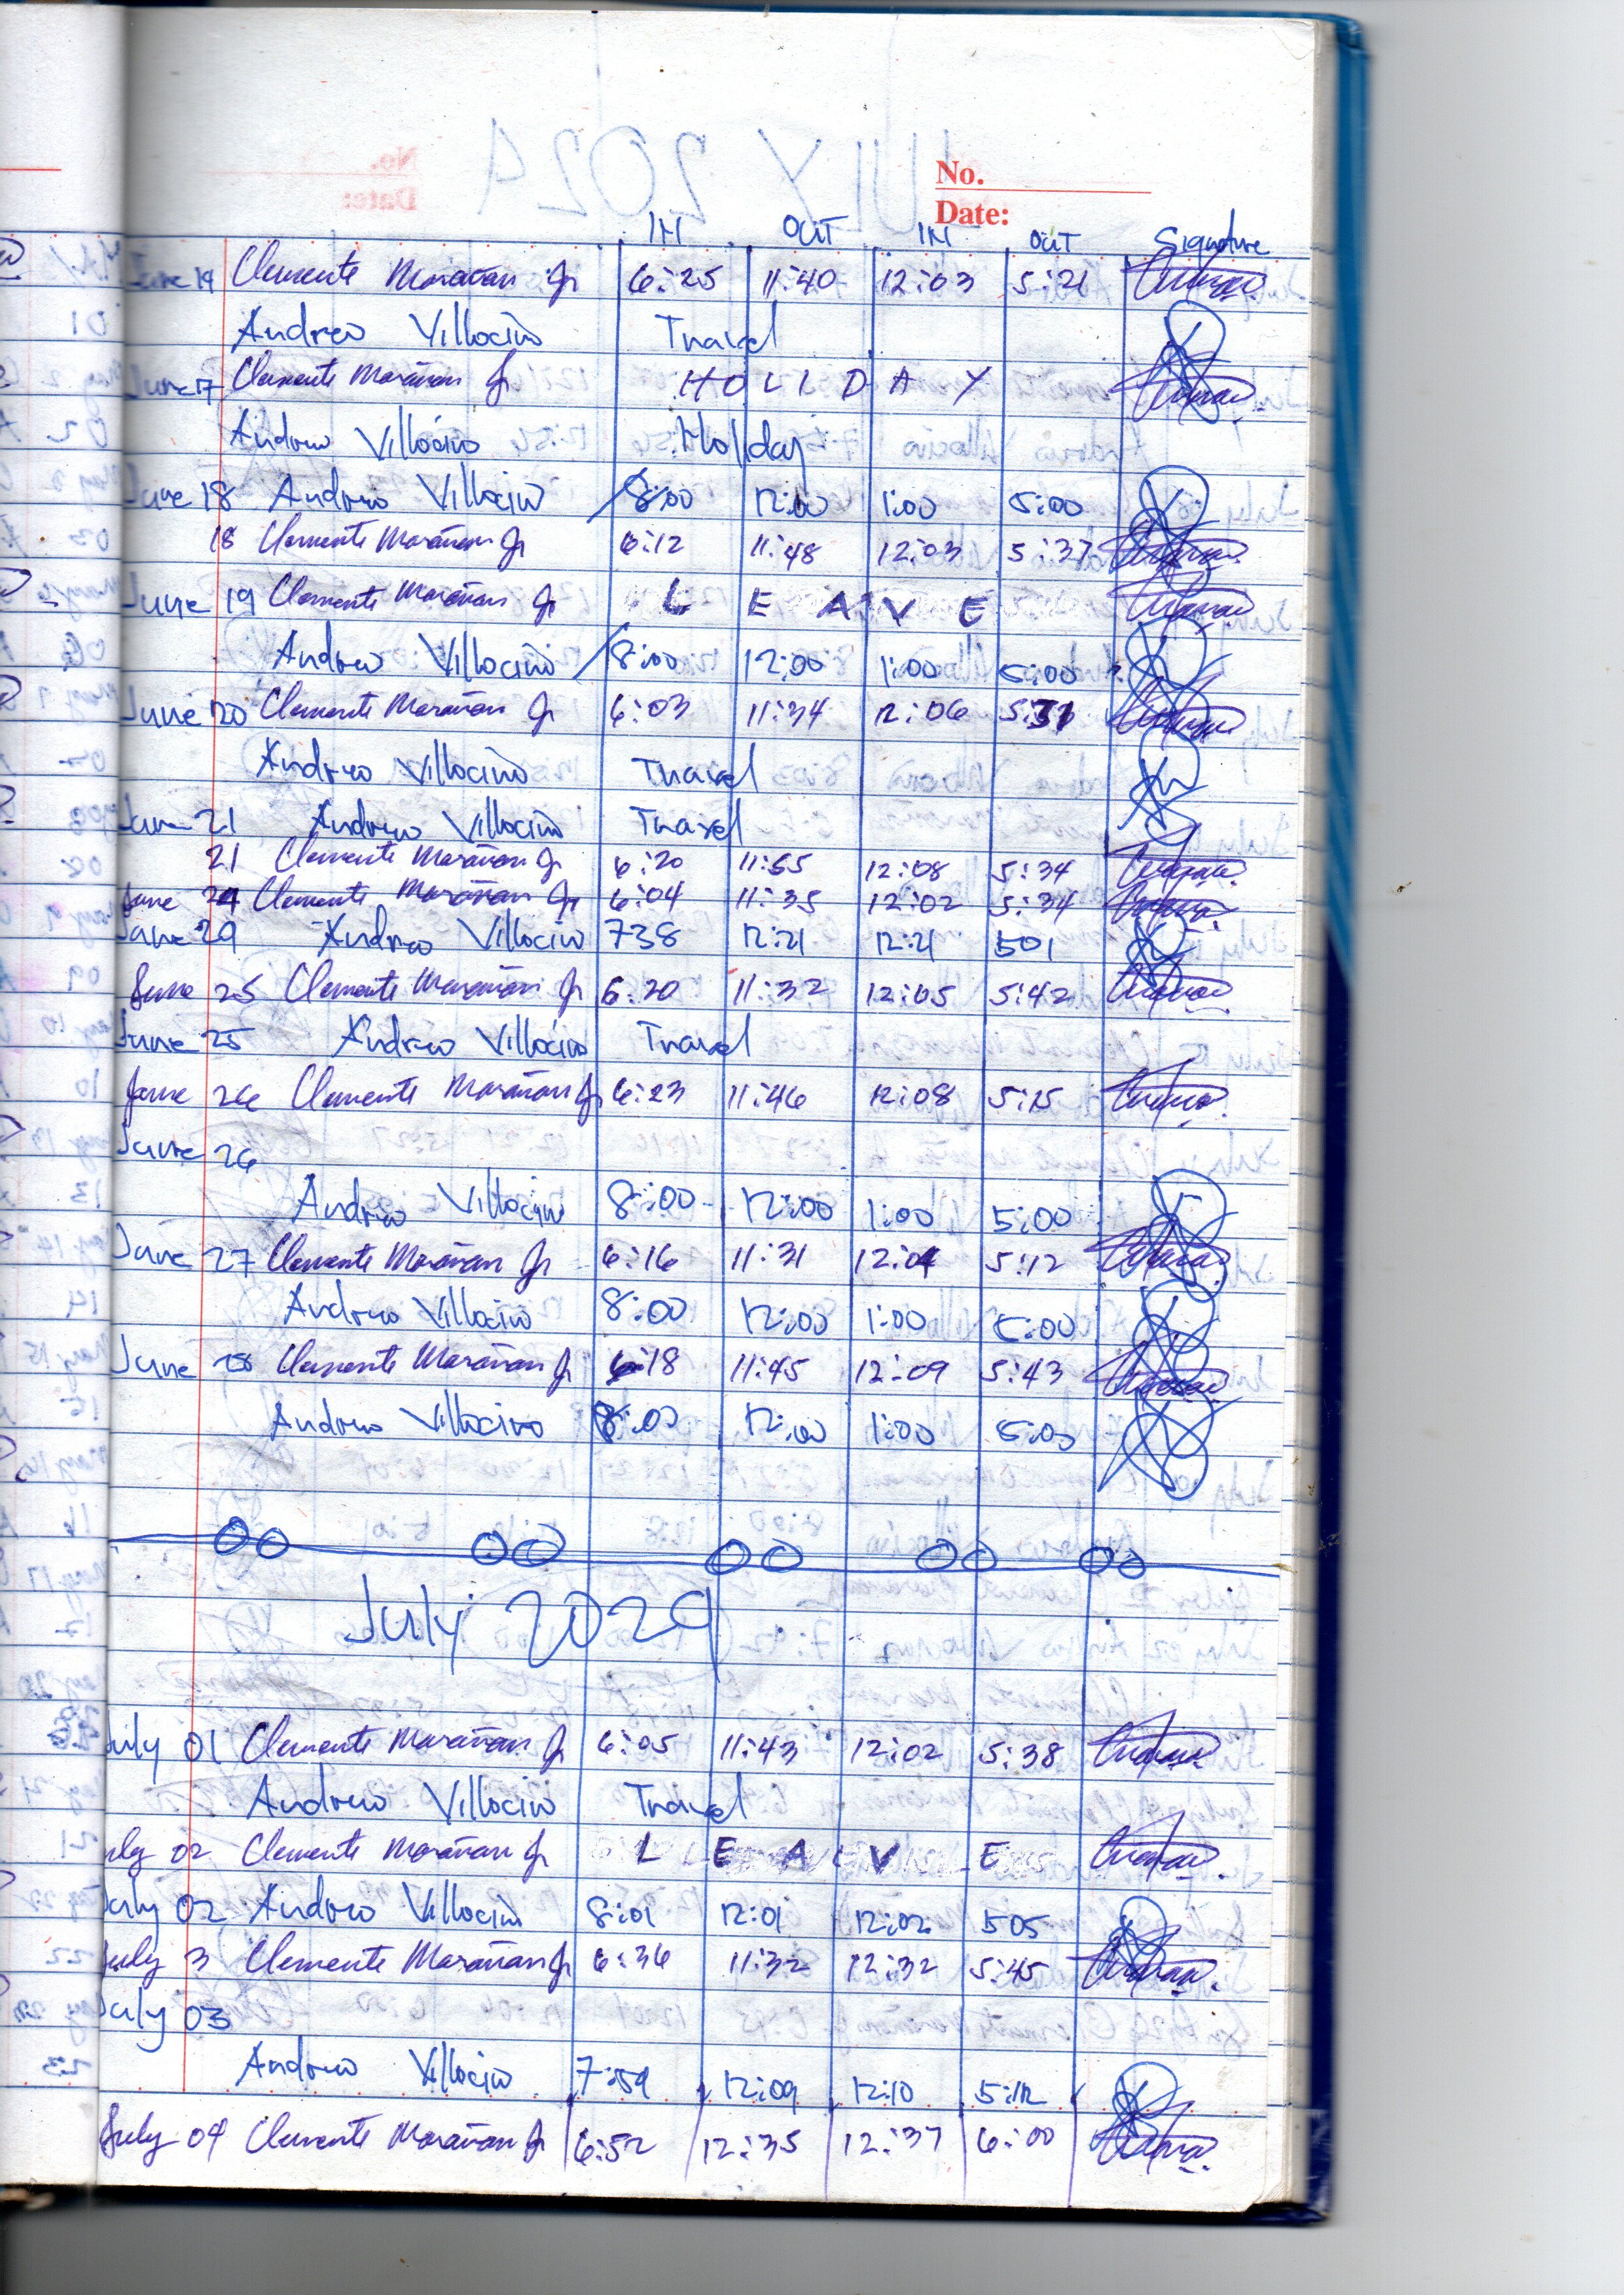 No.
Date:
IN OUT IN OUT Signature
June 14 Clemente Marañan Jr 6:25 11:40 12:03 5:21
Andrew Villocino Travel
June 17 Clemente Marañan Jr HOLIDAY
Andrew Villocino Holiday
June 18 Andrew Villocino 8:00 12:00 1:00 5:00
18 Clemente Marañan Jr 6:12 11:48 12:03 5:37
June 19 Clemente Marañan Jr LEAVE
Andrew Villocino 8:00 12:00 1:00 5:00
June 20 Clemente Marañan Jr 6:03 11:34 12:06
Andrew Villocino Travel
June 21 Andrew Villocino Travel
21 Clemente Marañan Jr 6:20 11:55 12:08 5:34
June 24 Clemente Marañan Jr 6:04 11:35 12:02 5:34
June 24 Andrew Villocino 738 12:21 12:21 501
June 25 Clemente Marañan Jr 6:20 11:32 12:05 5:42
June 25 Andrew Villocino Travel
June 26 Clemente Marañan Jr 6:23 11:46 12:08 5:15
June 26
Andrew Villocino 8:00 12:00 1:00 5:00
June 27 Clemente Marañan Jr 6:16 11:31 12:04 5:12
Andrew Villocino 8:00 12:00 1:00 5:00
June 28 Clemente Marañan Jr 6:18 11:45 12:09 5:43
Andrew Villocino 8:00 12:00 1:00 5:00
July 2024
July 01 Clemente Marañan Jr 6:05 11:43 12:02 5:38
Andrew Villocino Travel
July 02 Clemente Marañan Jr LEAVE
July 02 Andrew Villocino 8:01 12:01 12:02 505
July 3 Clemente Marañan Jr 6:36 11:32 12:32 5:45
July 03
Andrew Villocino 7:59 12:09 12:10 5:12
July 04 Clemente Marañan Jr 6:52 12:35 12:37 6:00